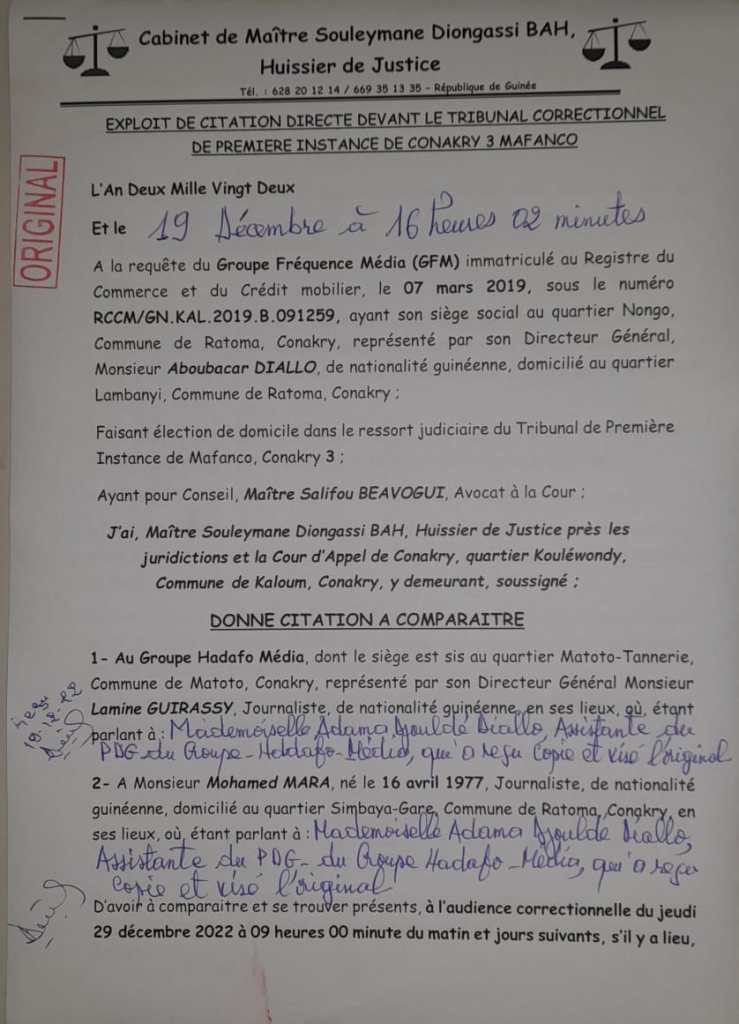 Cabinet de Maître Souleymane Diongassi BAH,
Huissier de Justice
Tél. : 628 20 12 14 / 669 35 13 35 - République de Guinée
EXPLOIT DE CITATION DIRECTE DEVANT LE TRIBUNAL CORRECTIONNEL
DE PREMIERE INSTANCE DE CONAKRY 3 MAFANCO
ORIGINAL
L'An Deux Mille Vingt Deux
Et le 19 Décembre à 16 heures 02 minutes
A la requête du Groupe Fréquence Média (GFM) immatriculé au Registre du
Commerce et du Crédit mobilier, le 07 mars 2019, sous le numéro
RCCM/GN.KAL.2019.B.091259, ayant son siège social au quartier Nongo,
Commune de Ratoma, Conakry, représenté par son Directeur Général,
Monsieur Aboubacar DIALLO, de nationalité guinéenne, domicilié au quartier
Lambanyi, Commune de Ratoma, Conakry ;
Faisant élection de domicile dans le ressort judiciaire du Tribunal de Première
Instance de Mafanco, Conakry 3 ;
Ayant pour Conseil, Maître Salifou BEAVOGUI, Avocat à la Cour ;
J'ai, Maître Souleymane Diongassi BAH, Huissier de Justice près les
juridictions et la Cour d'Appel de Conakry, quartier Kouléwondy,
Commune de Kaloum, Conakry, y demeurant, soussigné ;
DONNE CITATION A COMPARAITRE
1- Au Groupe Hadafo Média, dont le siège est sis au quartier Matoto-Tannerie,
Commune de Matoto, Conakry, représenté par son Directeur Général Monsieur
Lamine GUIRASSY, Journaliste, de nationalité guinéenne, en ses lieux, où, étant
parlant à : Mademoiselle Adama Djouldé Diallo, Assistante du
PDG du Groupe-Haddafo-Média, qui a reçu copie et visé l'original
Reçu
19.12.22
2- A Monsieur Mohamed MARA, né le 16 avril 1977, Journaliste, de nationalité
guinéenne, domicilié au quartier Simbaya-Gare, Commune de Ratoma, Conakry, en
ses lieux, où, étant parlant à : Mademoiselle Adama Djouldé Diallo,
Assistante du PDG- du Groupe Hadafo-Média, qui a reçu
copie et visé l'original
D'avoir à comparaitre et se trouver présents, à l'audience correctionnelle du jeudi
29 décembre 2022 à 09 heures 00 minute du matin et jours suivants, s'il y a lieu,